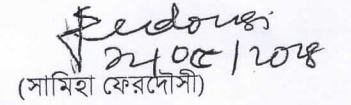 Ferdousi
২১/০৫/২০২৪
(সামিহা ফেরদৌসী)